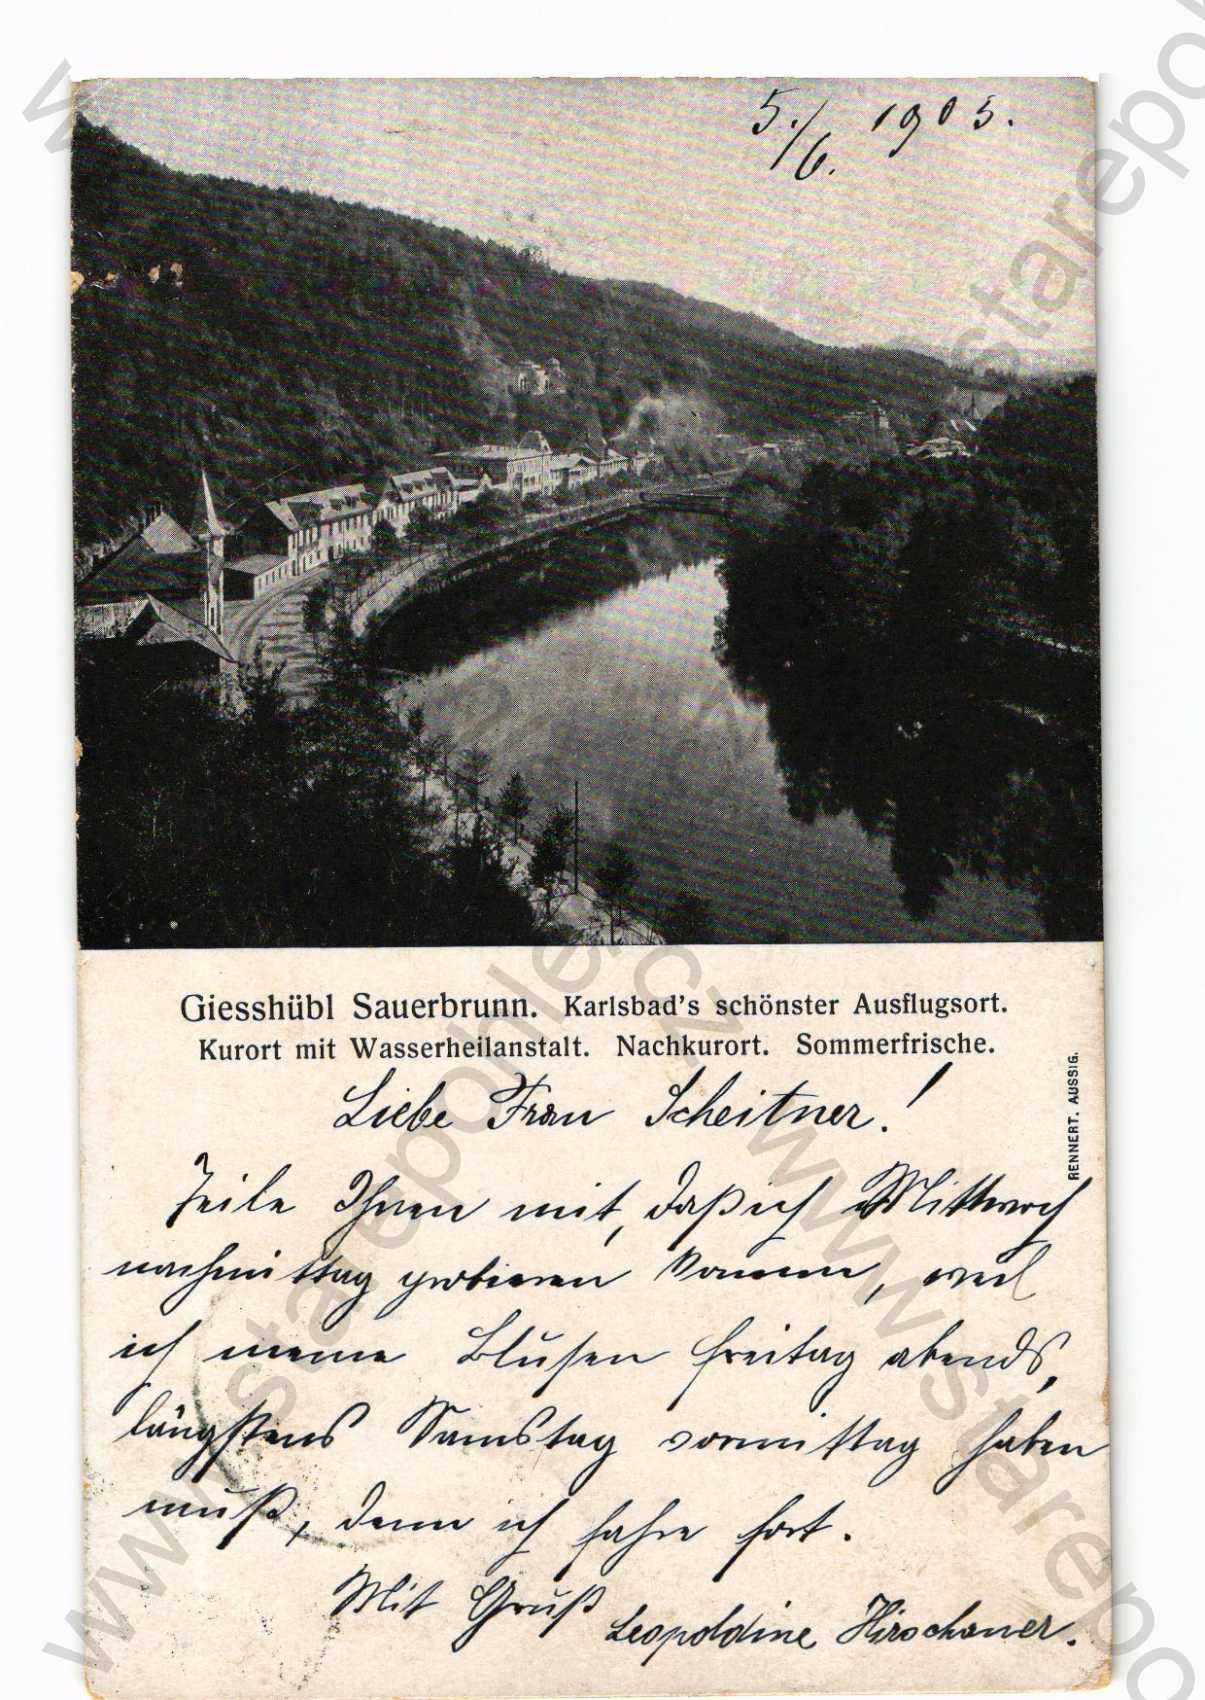 5./6. 1905.
Giesshübl Sauerbrunn. Karlsbad's schönster Ausflugsort.
Kurort mit Wasserheilanstalt. Nachkurort. Sommerfrische.
RENNERT. AUSSIG.
Liebe Frau Scheitner!
Teile Ihnen mit, daß ich Mittwoch
nachmittag probieren komme, weil
ich meine Blusen freitag abends,
längstens Samstag vormittag haben
muß, denn ich fahre fort.
Mit Gruß
Leopoldine Hirschauer.
www.starepohledy.cz